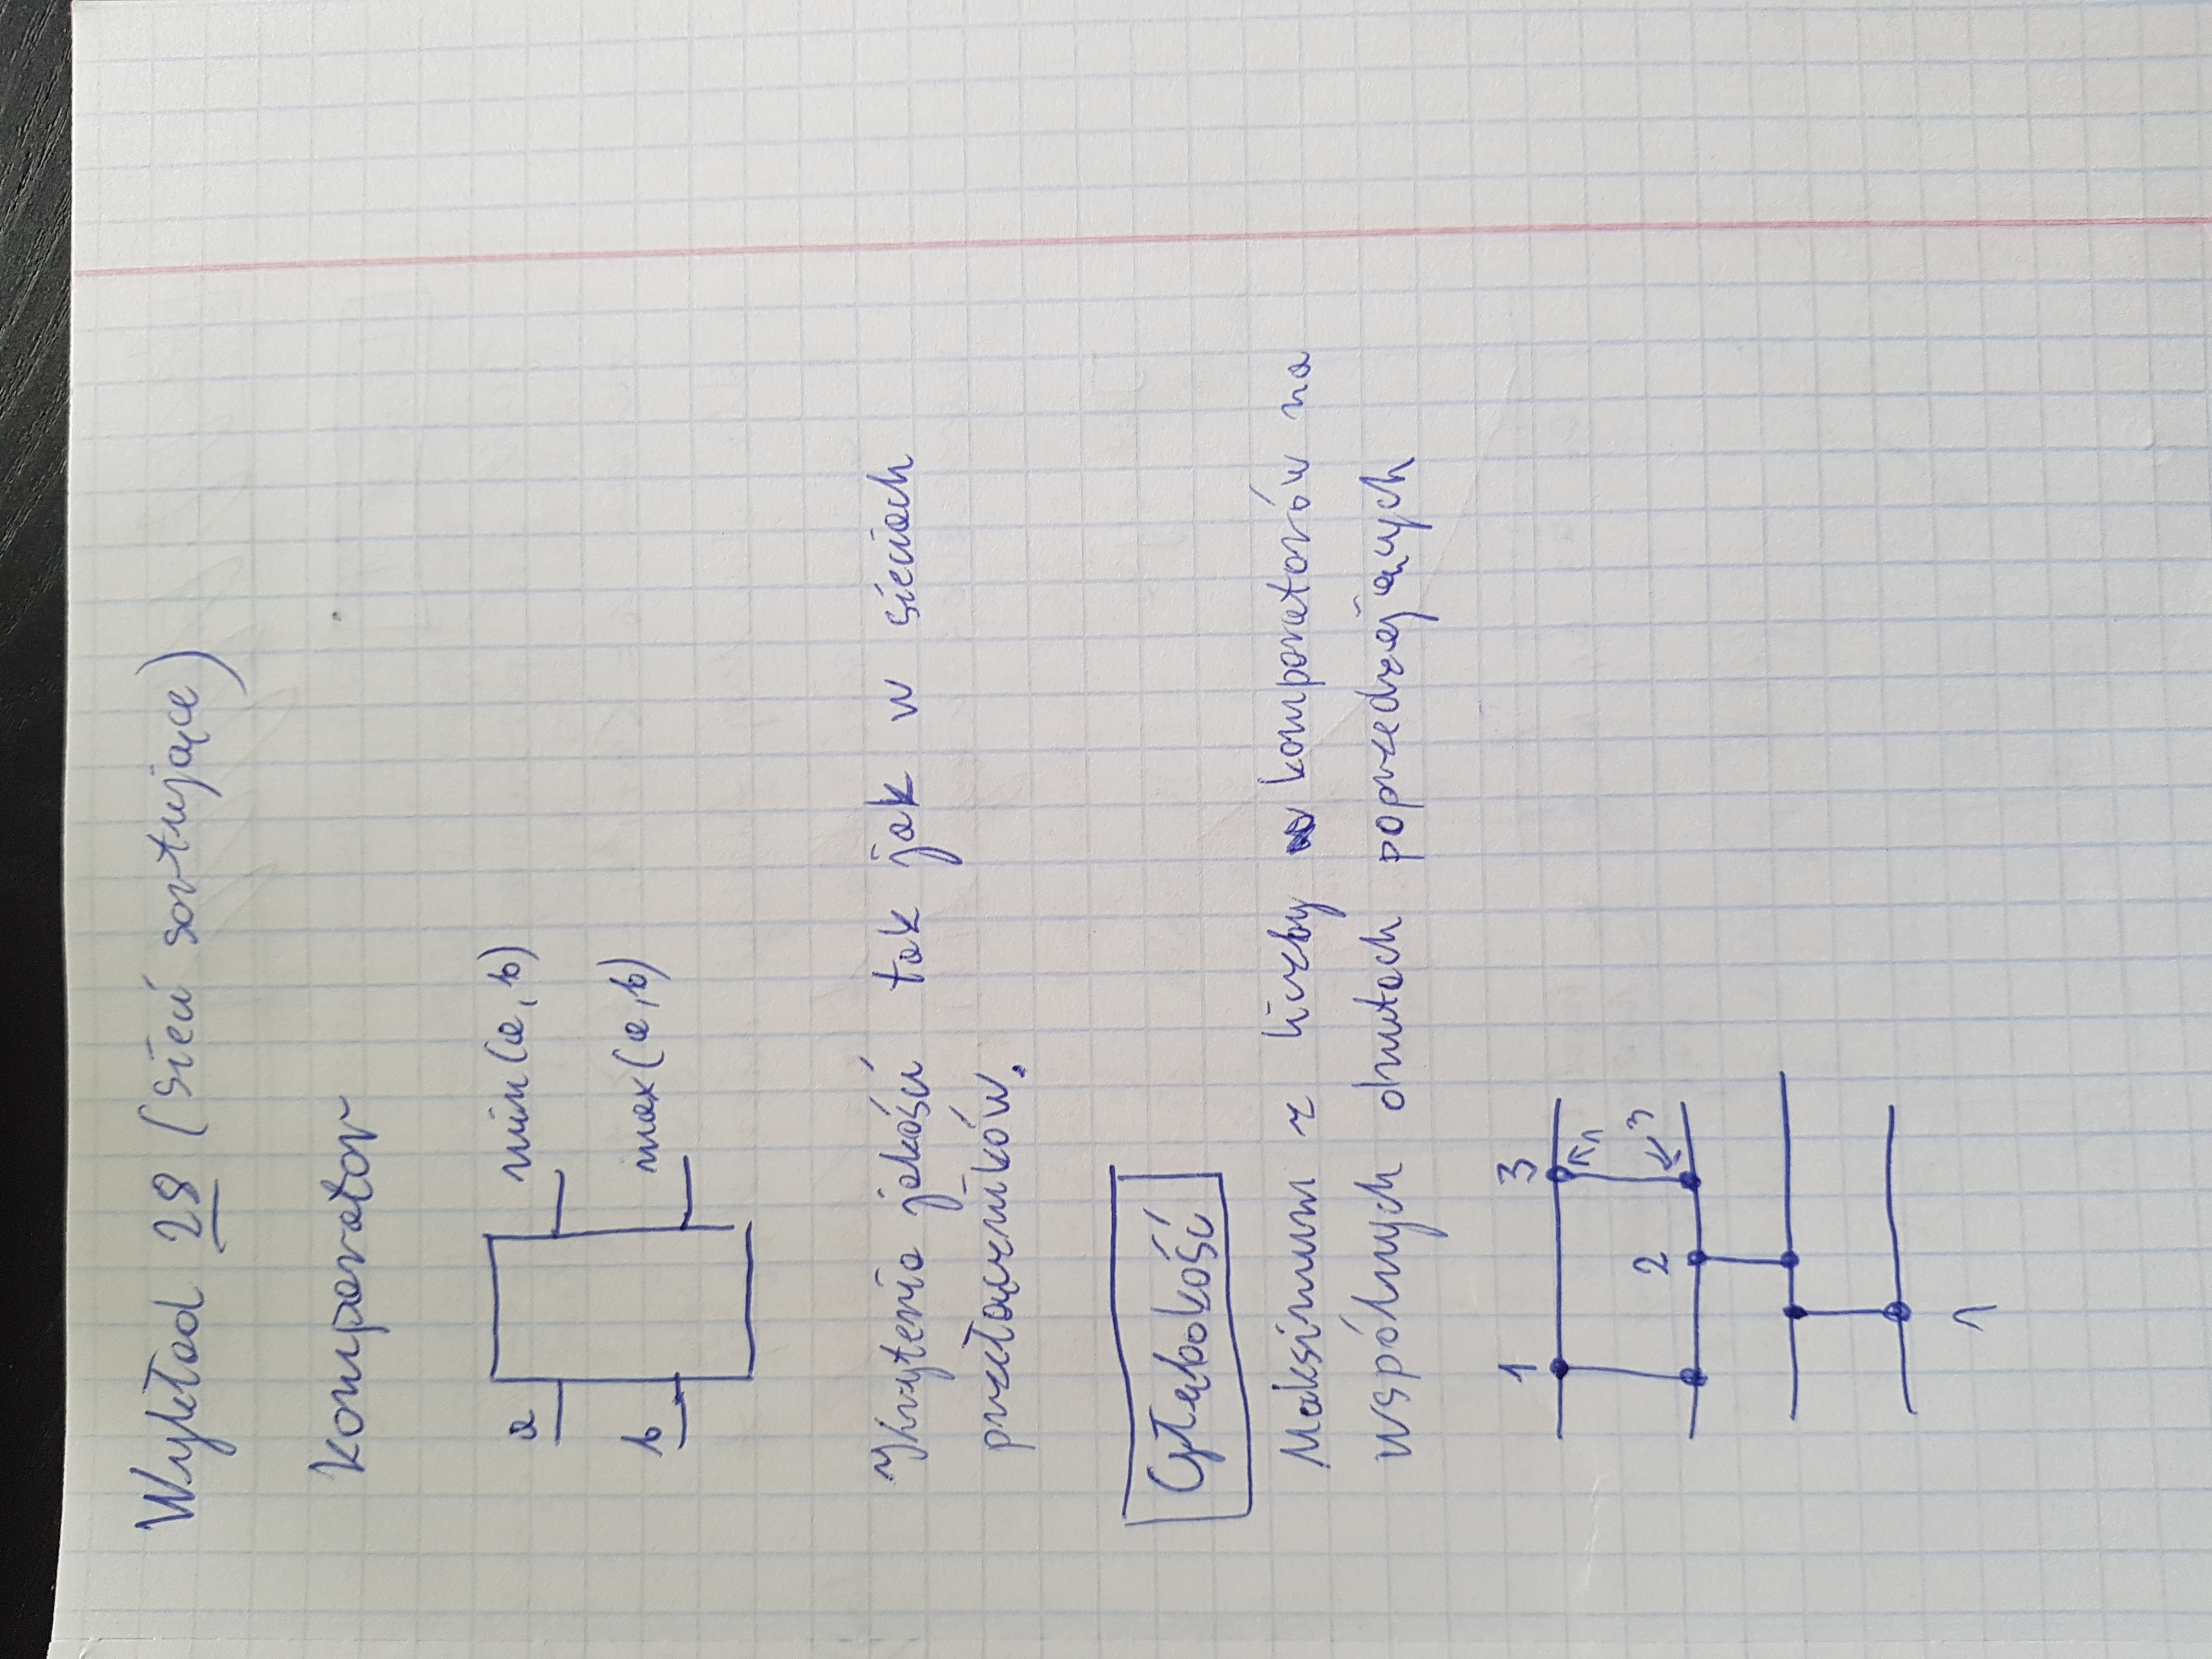 Wykład 28 (sieci sortujące)
Komparator
a min(a,b)
b max(a,b)
~Kryteria jakości tak jak w sieciach
przełączników.
Głębokość
Maksimum z liczby komparatorów na
wspólnych drutach poprzedzających
1 3
1
2 3
1